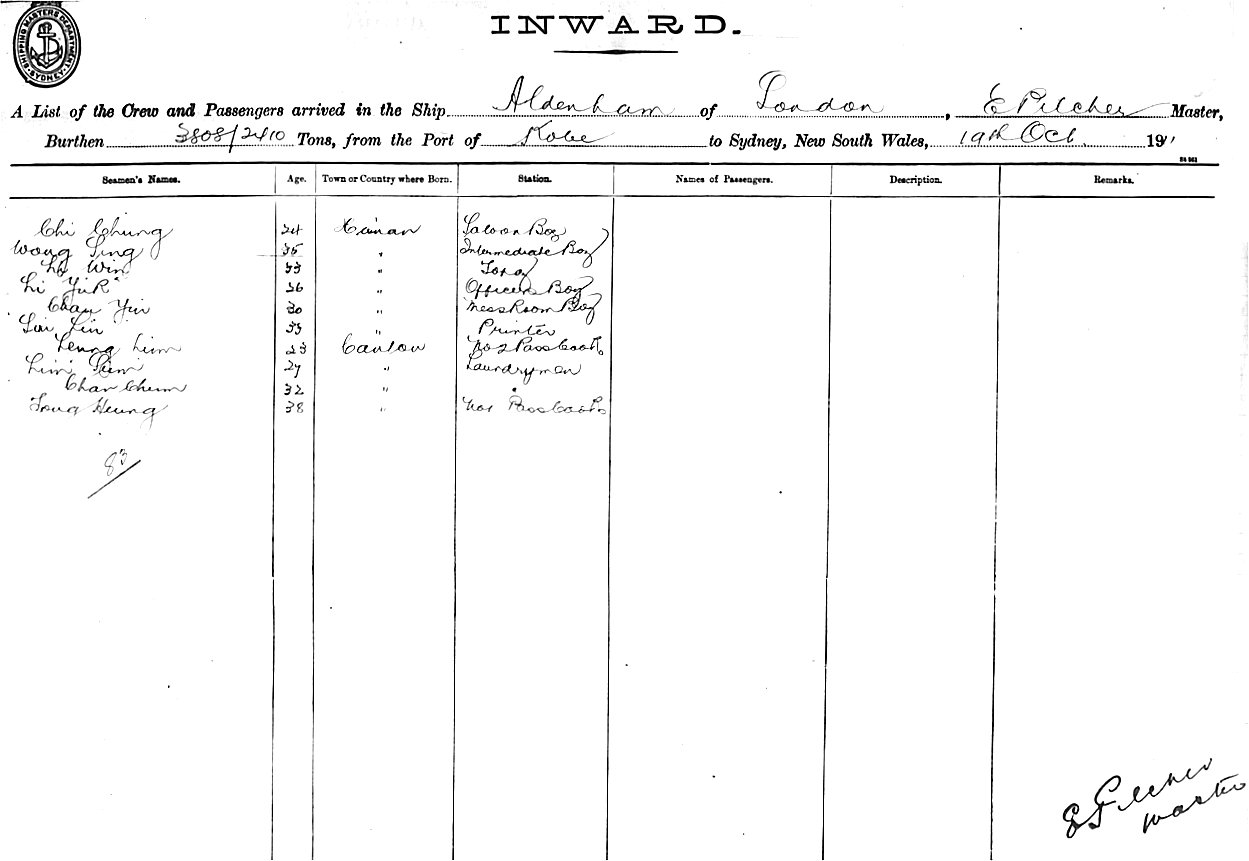 SHIPPING MASTERS DEPARTMENT SYDNEY
INWARD.
A List of the Crew and Passengers arrived in the Ship Aldenham of London, E Pilcher Master,
Burthen 3808/2410 Tons, from the Port of Kobe to Sydney, New South Wales, 19th Oct. 191
Seamen's Names. Age. Town or Country where Born. Station. Names of Passengers. Description. Remarks.
Chi Chung 24 Hainan Saloon Boy
Wong Sing 35 " Intermediate Boy
Lo Win 33 "
Li Yik 36 " Officers Boy
Chan Yin 30 " Messroom Boy
Lai Lin 33 " Printer
Leung Lim 23 Canton No 2 Pass Cook
Lim 27 " Laundrymen
Chan Chum 32 " "
Tong Heung 38 " No1 Pass Cook
83
E Pilcher
Master